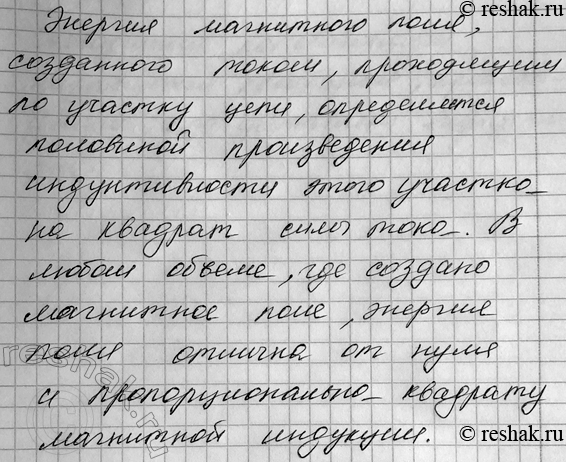 reshak.ru
Энергия магнитного поля,
созданного током, проходящим
по участку цепи, определяется
половиной произведения
индуктивности этого участка
на квадрат силы тока. В
любом объеме, где создано
магнитное поле, энергия
поля отлична от нуля
и пропорциональна квадрату
магнитной индукции.
reshak.ru
reshak.ru